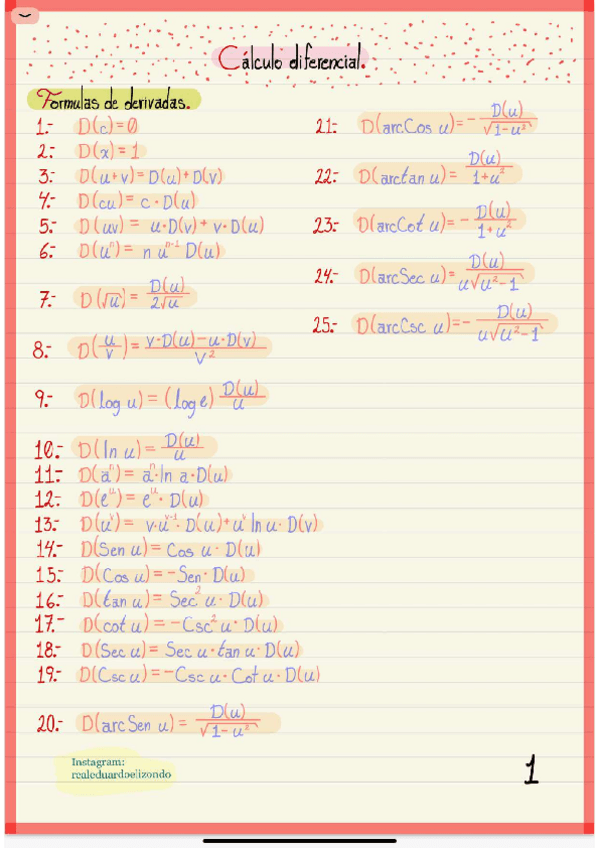 Cálculo diferencial.
Formulas de derivadas.
1.- D(c)=0
2.- D(x)=1
3.- D(u+v)=D(u)+D(v)
4.- D(cu)= c·D(u)
5.- D(uv)= u·D(v)+v·D(u)
6.- D(uⁿ)= n uⁿ⁻¹ D(u)
7.- D(√u)= D(u)/2√u
8.- D(u/v)= v·D(u)-u·D(v)/v²
9.- D(log u)=(log e) D(u)/u
10.- D(ln u)= D(u)/u
11.- D(aᵘ)= aᵘ·ln a·D(u)
12.- D(eᵘ)= eᵘ·D(u)
13.- D(uᵛ)= v·uᵛ⁻¹·D(u)+uᵛ ln u·D(v)
14.- D(Sen u)= Cos u·D(u)
15.- D(Cos u)=-Sen·D(u)
16.- D(tan u)= Sec² u·D(u)
17.- D(cot u)=-Csc² u·D(u)
18.- D(Sec u)= Sec u·tan u·D(u)
19.- D(Csc u)=-Csc u·Cot u·D(u)
20.- D(arcSen u)= D(u)/√1-u²
21.- D(arcCos u)=- D(u)/√1-u²
22.- D(arctan u)= D(u)/1+u²
23.- D(arcCot u)=- D(u)/1+u²
24.- D(arcSec u)= D(u)/u√u²-1
25.- D(arcCsc u)=- D(u)/u√u²-1
Instagram:
realeduardoelizondo
1